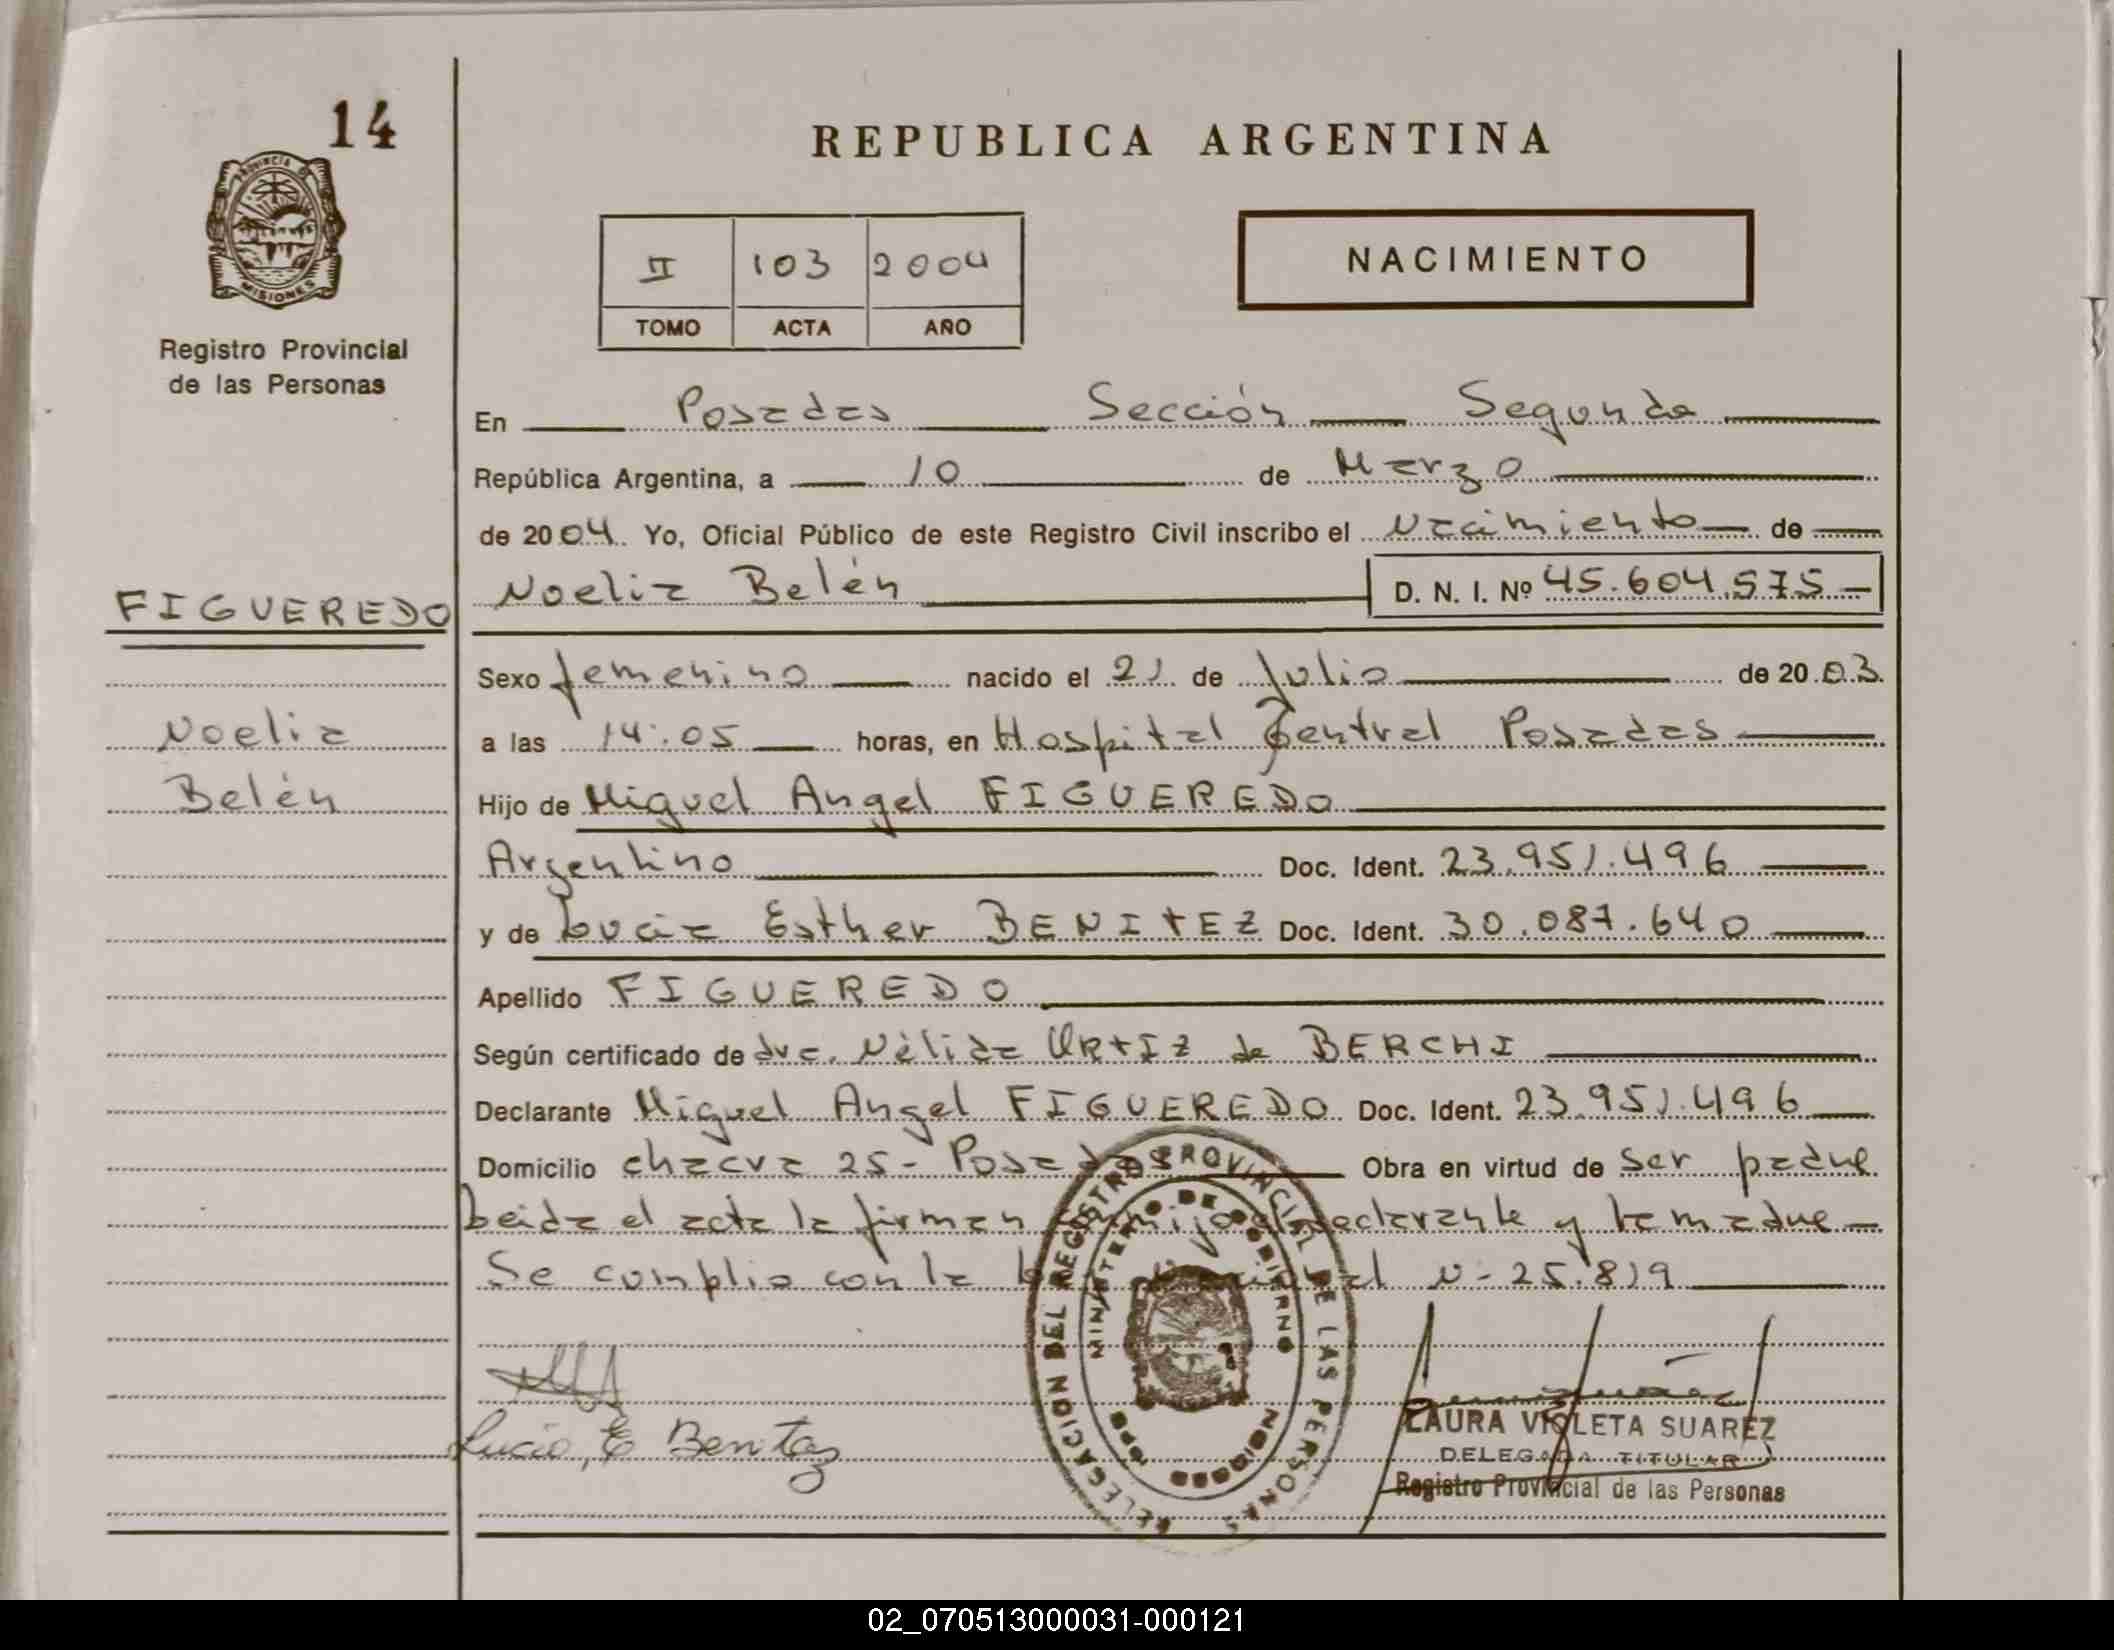 14
PROVINCIA DE
MISIONES
Registro Provincial
de las Personas
FIGUEREDO
Noelia
Belén
REPUBLICA ARGENTINA
II 103 2004
TOMO ACTA AÑO
NACIMIENTO
En Posadas Sección Segunda
República Argentina, a 10 de Marzo
de 2004. Yo, Oficial Público de este Registro Civil inscribo el Nacimiento de
Noelia Belén D. N. I. Nº 45.604.575
Sexo femenino nacido el 21 de Julio de 2003.
a las 14:05 horas, en Hospital Central Posadas
Hijo de Miguel Angel FIGUEREDO
Argentino Doc. Ident. 23.951.496
y de Lucia Esther BENITEZ Doc. Ident. 30.087.640
Apellido FIGUEREDO
Según certificado de dra. Nélida ORTIZ de BERCHI
Declarante Miguel Angel FIGUEREDO Doc. Ident. 23.951.496
Domicilio chacra 25 - Posadas Obra en virtud de ser padre
Leida el acta la firman conmigo el declarante y la madre
Se cumplio con la N-25.819
Lucia, E Benitez
DELEGACION DEL REGISTRO PROVINCIAL DE LAS PERSONAS
MINISTERIO DE GOBIERNO
LAURA VIOLETA SUAREZ
DELEGADA TITULAR
Registro Provincial de las Personas
02_070513000031-000121